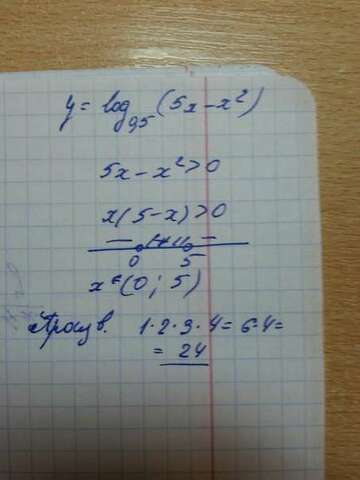 y = log₀,₅ (5x − x²)
5x − x² > 0
x(5−x) > 0
− + −
0 5
x ∈ (0; 5)
Произв. 1·2·3·4 = 6·4 =
= 24